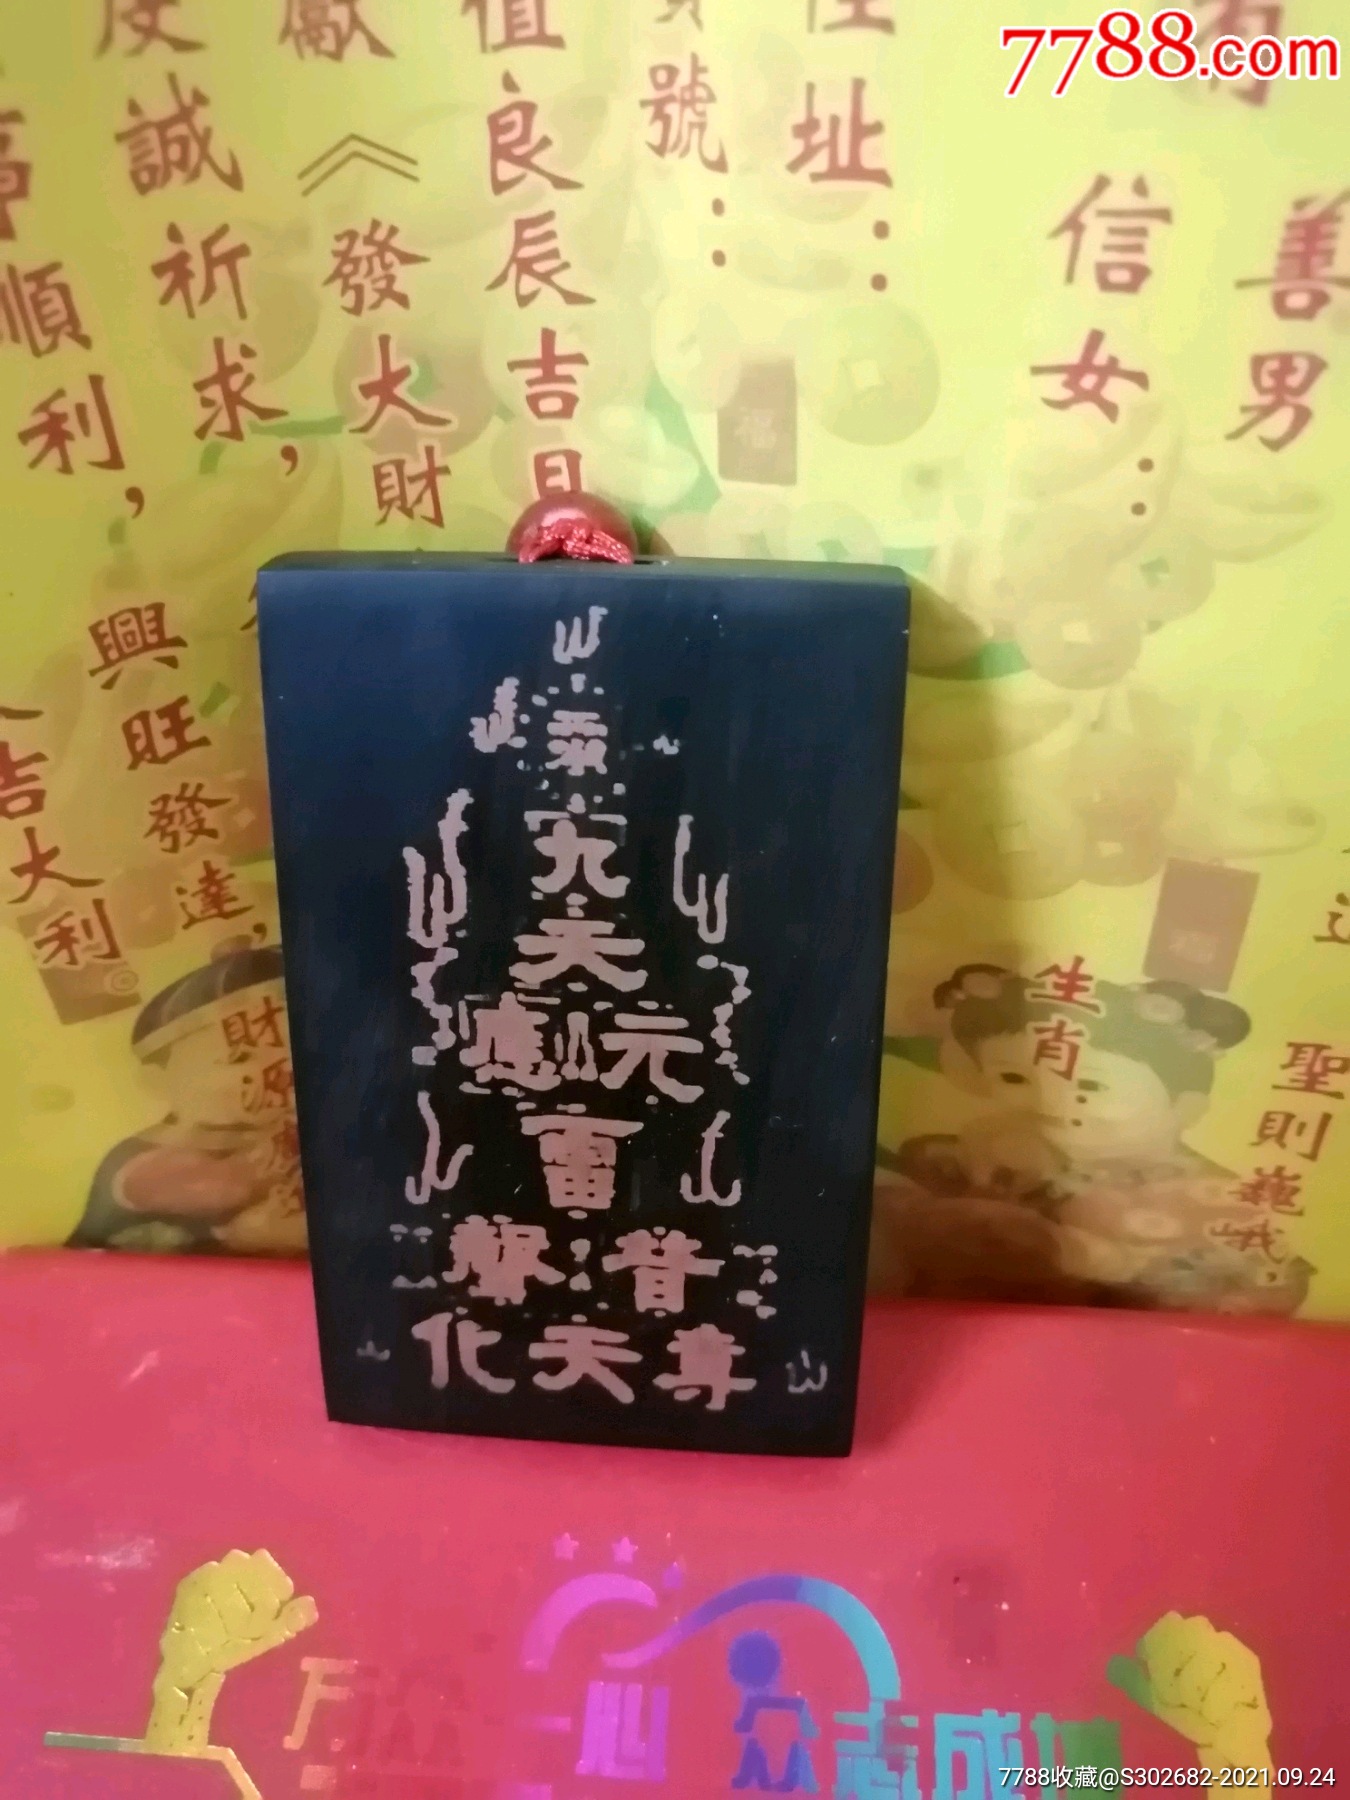 7788.com
善男
信女：
生肖：
住址：
號：
值良辰吉日
獻
《發大財
虔誠祈求，
順利，
興旺發達，
吉大利
財源廣
聖則巍峨，
九
天
應元
雷
聲普
化天尊
万众一心
众志成城
7788收藏@S302682-2021.09.24